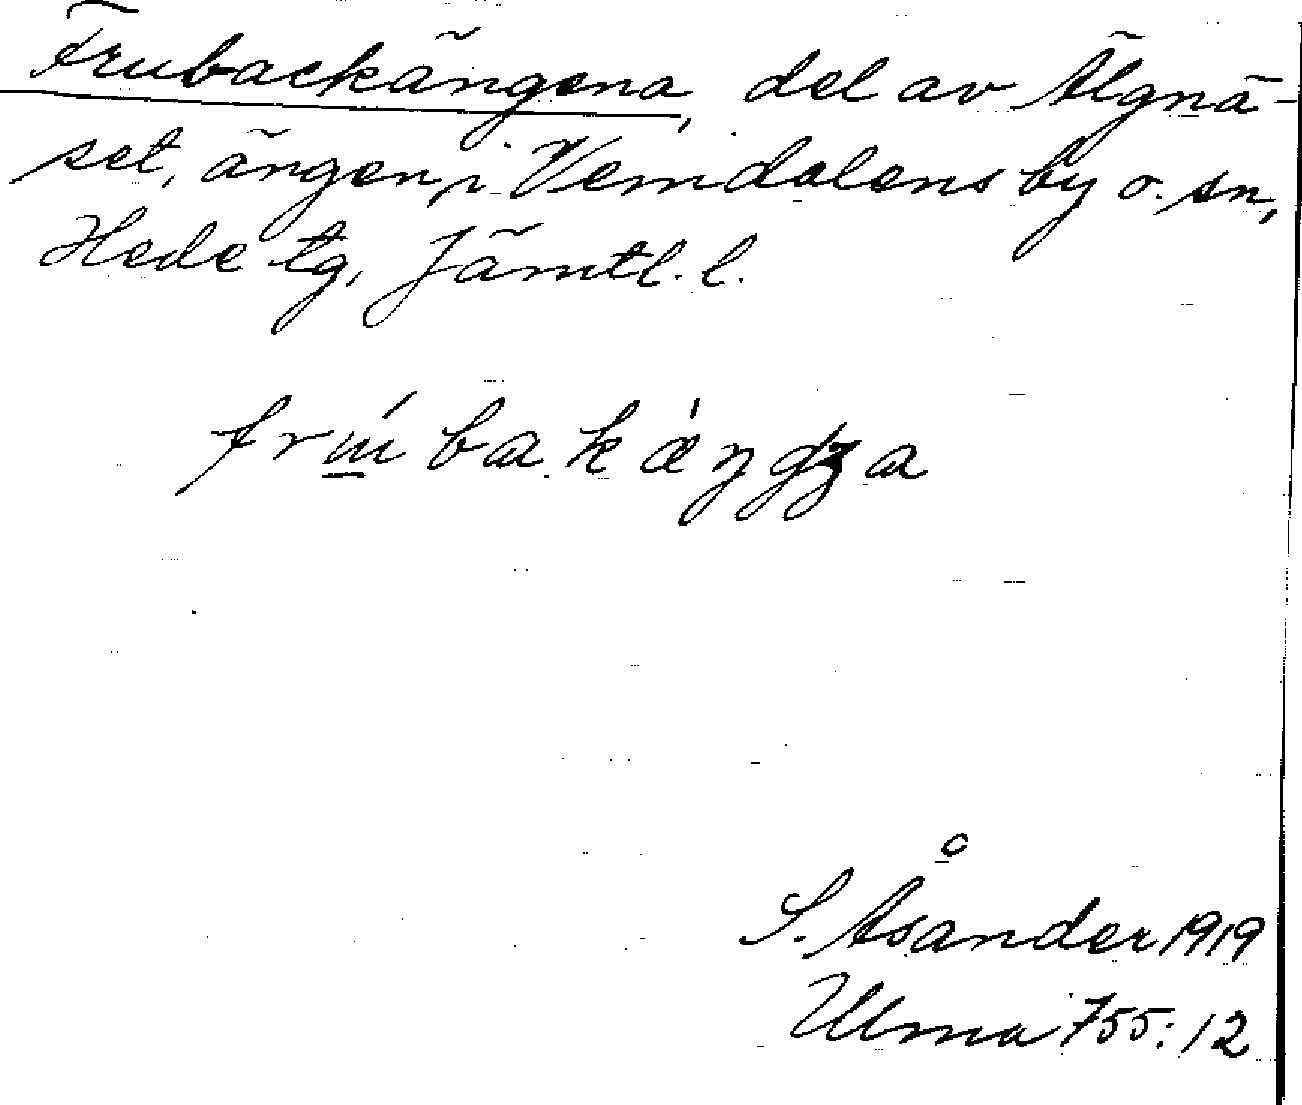 Frubackängena, del av Älgnä-
set, ängen, i Vemdalens by o. sn,
Hede tg, Jämtl. l.
S. Åsander 1919
Ulma 755:12